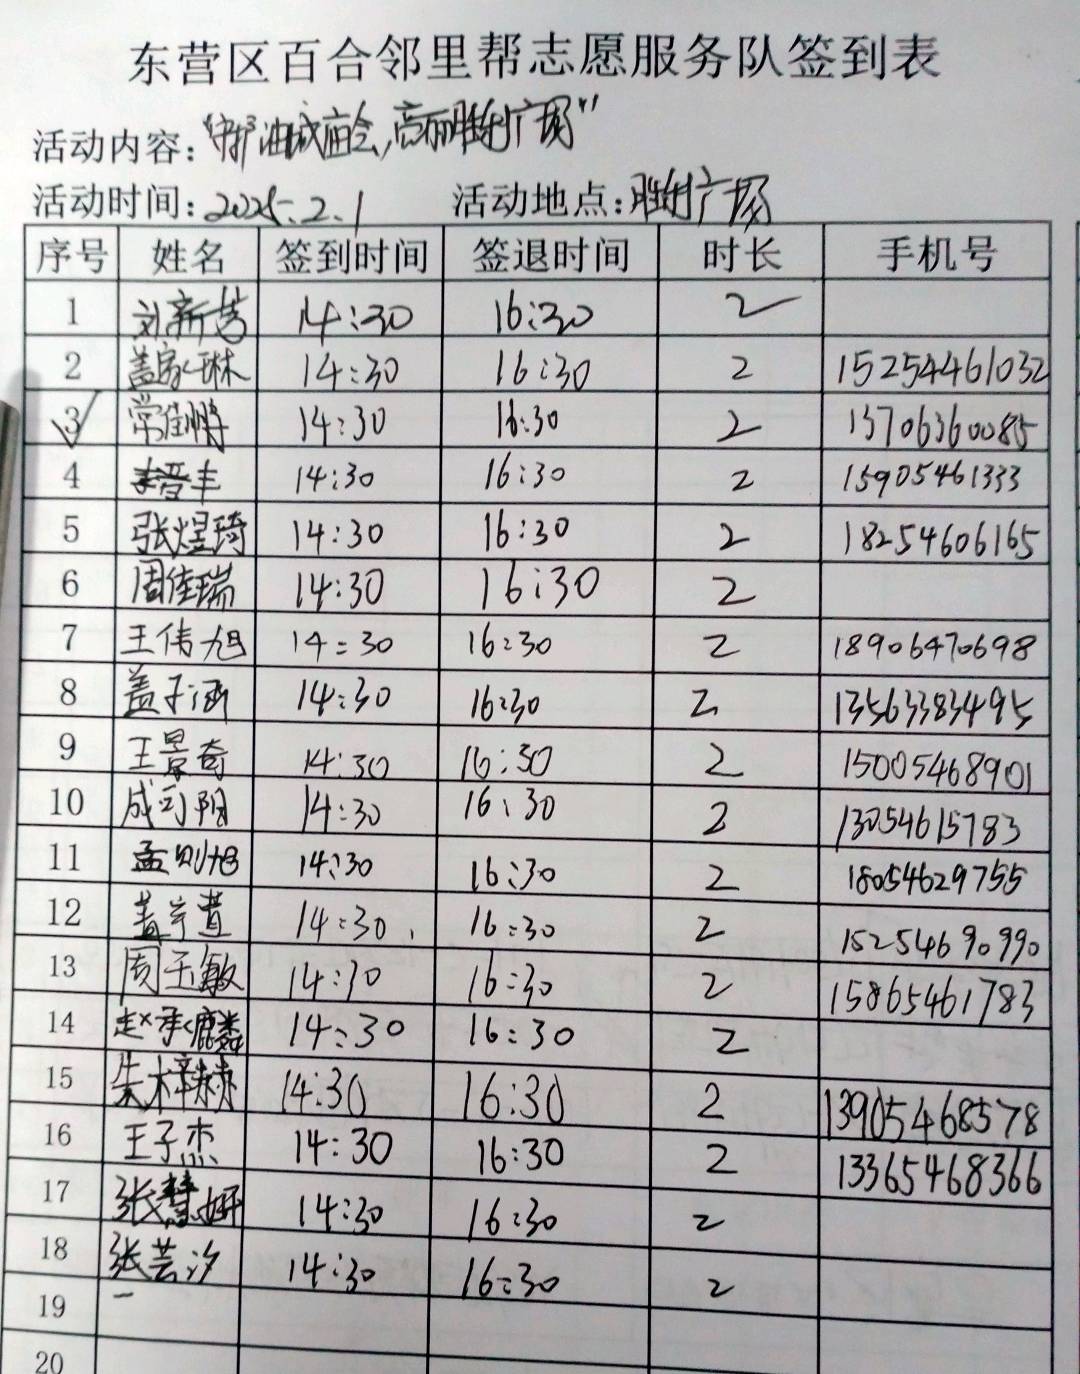 东营区百合邻里帮志愿服务队签到表
活动内容："守护油城庙会,亮丽胜利广场"
活动时间：2025.2.1 活动地点：胜利广场
序号 姓名 签到时间 签退时间 时长 手机号
1 刘新 14:30 16:30 2
2 盖家琳 14:30 16:30 2 15254461032
3 常佳鹏 14:30 16:30 2 13706360085
4 李晋丰 14:30 16:30 2 15905461333
5 张煜琦 14:30 16:30 2 18254606165
6 周佳瑞 14:30 16:30 2
7 王伟旭 14:30 16:30 2 18906470698
8 盖子涵 14:30 16:30 2 13563383495
9 王景奇 14:30 16:30 2 15005468901
10 成司阳 14:30 16:30 2 13054615783
11 孟则旭 14:30 16:30 2 18054629755
12 盖 14:30 16:30 2 15254690990
13 周玉敏 14:30 16:30 2 15865461783
14 赵承麟 14:30 16:30 2
15 朱梓赫 14:30 16:30 2 13905468578
16 王子杰 14:30 16:30 2 13365468366
17 张慧妍 14:30 16:30 2
18 张芸汐 14:30 16:30 2
19
20